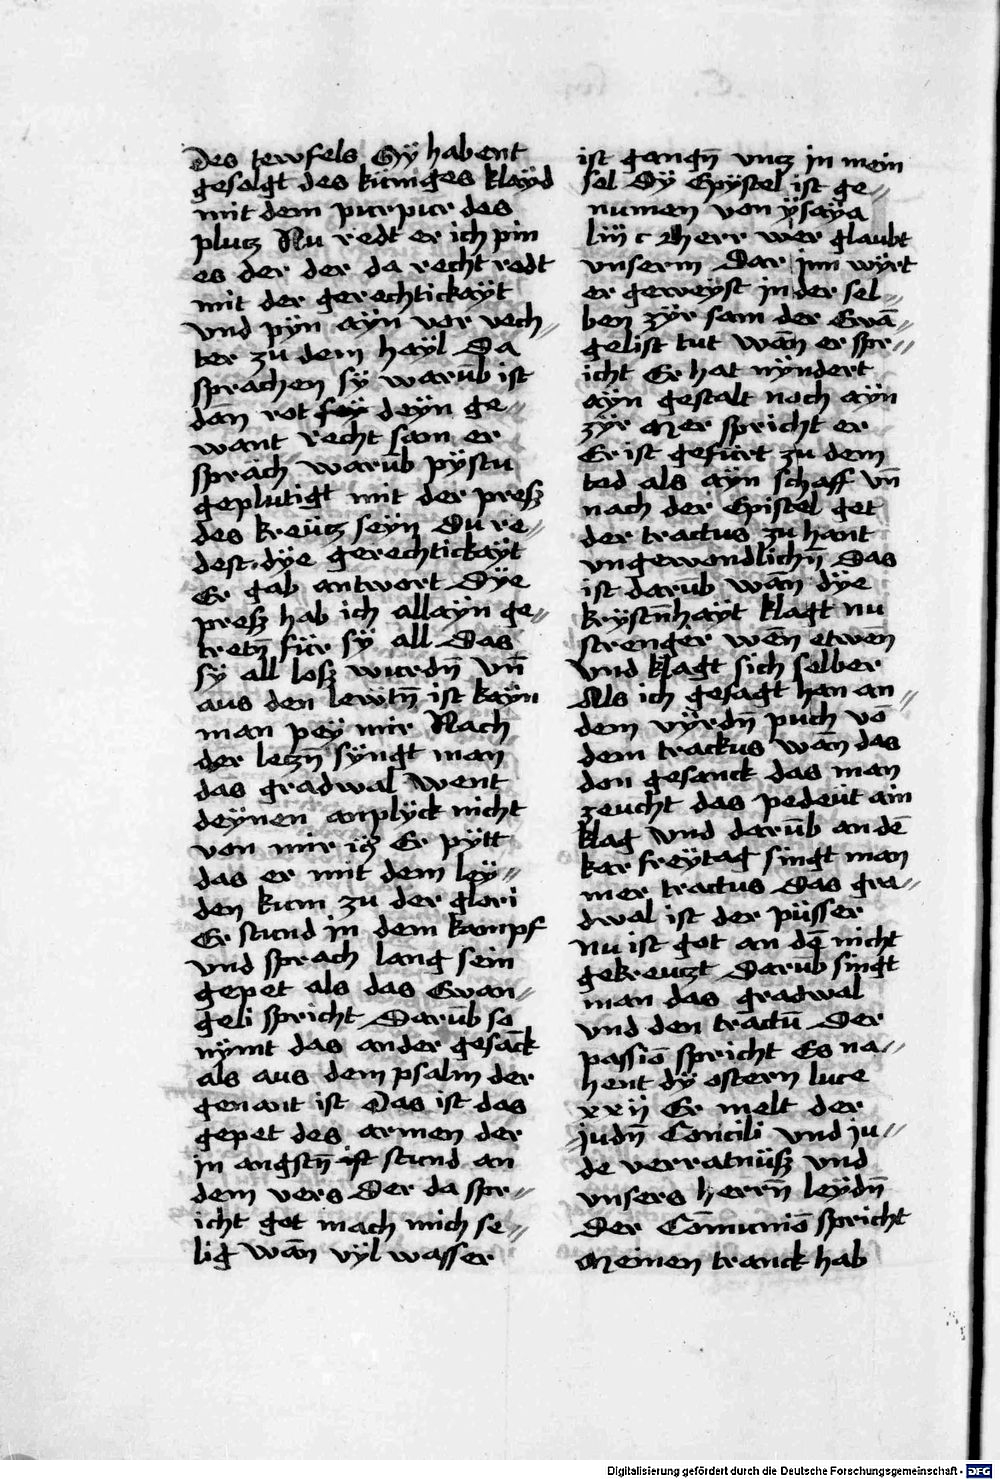 Des tewfels Sÿ habent
gesolgt des küniges klayd
mit dem purpur des
plutz Nu redt er ich pin
es der der da recht redt
mit der gerechtickaÿt
vnd pÿn aÿn vor vech„
ter zu dem haÿl Da
sprachen sÿ warūb ist
dan rot deÿn ge„
want recht sam er
sprach warūb pÿstu
geplutigt mit der preß
des kreütz seÿn Du re„
dest dÿe gerechtickaÿt
Er gab antwort Dÿe
preß hab ich allaÿn ge„
tretn̄ für sÿ all Das
sÿ all loß wurdn̄ vn̄
aus den lewtn̄ ist kaÿn
man peÿ mir Nach
der letzn̄ sÿngt man
das gradwal Went
deÿnen anplÿck nicht
von mir Er pÿtt
das er mit dem leÿ„
den kum zu der glori
Er stund in dem kampf
vnd sprach lang sein
gepet als das Ewan„
geli spricht Darūb so
nÿmt das ander gesāck
als aus dem psalm der
genant ist Das ist das
gepet des armen der
in angstn̄ ist stund an
dem vers Der da spr„
icht got mach mich se„
lig Wān vÿl wasser
ist gangn̄ vntz in mein
sel Dÿ Epÿstel ist ge„
numen von ÿsaÿa
liii c herr wer glaubt
vnserm Dar inn wÿrt
er geweÿst in der sel„
ben zÿr sam der Ewā„
gelist tut wān er spr„
icht Er hat nÿndert
aÿn gestalt noch aÿn
zÿr Mer spricht er
Er ist gefürt zu dem
tod als aÿn schaff vn̄
nach der Epistel get
der tractus zu hant
vngewondlichn̄ Das
ist darub wān dÿe
krÿstn̄haÿt klagt nu
strenger wēn etwēn
Vnd klagt sich selber
Als ich gesagt han an„
dem vÿrdn̄ puch vō
dem trackus wān das
don gesanck das man
zeucht das pedeüt ain
klag Vnd darūb an dē
karfreÿtag singt man
mer tractus Das gra„
dwal ist der püsser
Nu ist got an dē nicht
gekreutzt Darūb singt
man das gradwal
vnd den tractū Der
passiō spricht Es na„
hent dÿ ostern luce
xxij Er melt der
judn̄ Concili vnd ju„
de verratnüß vnd
vnsers herrn̄ leÿdn̄
Der Cōmuniō spricht
Meinen tranck hab
Digitalisierung gefördert durch die Deutsche Forschungsgemeinschaft - DFG